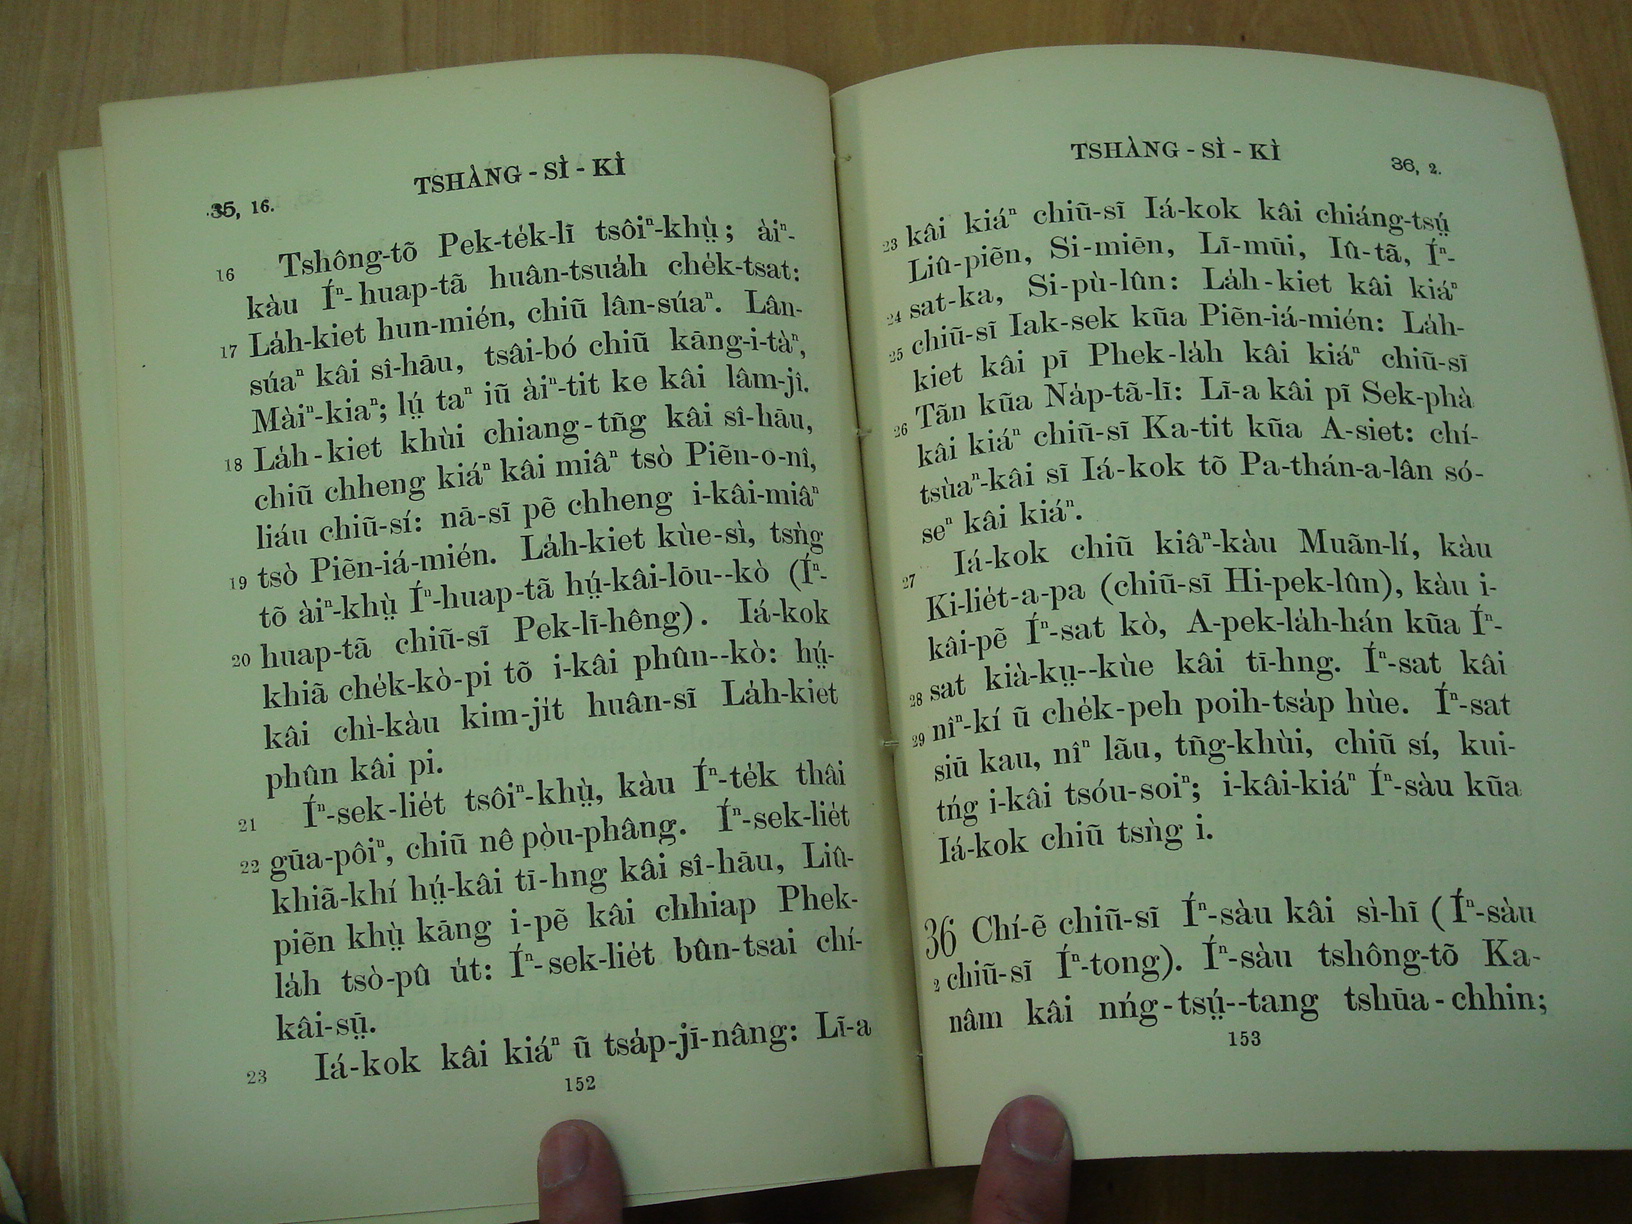 TSHÀNG - SÌ - KÌ
35, 16.
16 Tshông-tõ Pek-te̍k-lĩ tsôiⁿ-khṳ̀; àiⁿ-
kàu Íⁿ-huap-tã huân-tsua̍h che̍k-tsat:
La̍h-kiet hun-mién, chiũ lân-súaⁿ. Lân-
17 súaⁿ kâi sî-hāu, tsâi-bó chiũ kāng-i-tàⁿ,
Màiⁿ-kiaⁿ; lṳ́ taⁿ iũ àiⁿ-tit ke kâi lâm-jî.
18 La̍h-kiet khùi chiang-tn̄g kâi sî-hāu,
chiũ chheng kiáⁿ kâi miâⁿ tsò Piẽn-o-nî,
liáu chiũ-sí: nā-sĩ pẽ chheng i-kâi-miâⁿ
19 tsò Piẽn-iá-mién. La̍h-kiet kùe-sì, tsǹg
tõ àiⁿ-khṳ̀ Íⁿ-huap-tã hṳ́-kâi-lōu--kò (Íⁿ-
20 huap-tã chiũ-sĩ Pek-lĩ-hêng). Iá-kok
khiã che̍k-kò-pi tõ i-kâi phûn--kò: hṳ́-
kâi chì-kàu kim-ji̍t huân-sĩ La̍h-kiet
phûn kâi pi.
21 Íⁿ-sek-lie̍t tsôiⁿ-khṳ̀, kàu Íⁿ-te̍k thâi
22 gūa-pôiⁿ, chiũ nê pòu-phâng. Íⁿ-sek-lie̍t
khiã-khí hṳ́-kâi tī-hng kâi sî-hāu, Liû-
piẽn khṳ̀ kāng i-pẽ kâi chhiap Phek-
la̍h tsò-pû u̍t: Íⁿ-sek-lie̍t bûn-tsai chí-
kâi-sṳ̄.
23 Iá-kok kâi kiáⁿ ũ tsa̍p-jī-nâng: Lĩ-a
152
TSHÀNG - SÌ - KÌ
36, 2.
23 kâi kiáⁿ chiũ-sĩ Iá-kok kâi chiáng-tsṳ́
Liû-piẽn, Si-miēn, Lĩ-mūi, Iû-tã, Íⁿ-
24 sat-ka, Si-pù-lûn: La̍h-kiet kâi kiáⁿ
25 chiũ-sĩ Iak-sek kũa Piẽn-iá-mién: La̍h-
kiet kâi pĩ Phek-la̍h kâi kiáⁿ chiũ-sĩ
26 Tãn kũa Na̍p-tã-lĩ: Lĩ-a kâi pĩ Sek-phà
kâi kiáⁿ chiũ-sĩ Ka-tit kũa A-siet: chí-
tsùaⁿ-kâi sĩ Iá-kok tõ Pa-thán-a-lân só-
seⁿ kâi kiáⁿ.
27 Iá-kok chiũ kiâⁿ-kàu Muãn-lí, kàu
Ki-lie̍t-a-pa (chiũ-sĩ Hi-pek-lûn), kàu i-
kâi-pẽ Íⁿ-sat kò, A-pek-la̍h-hán kũa Íⁿ-
28 sat kià-kṳ--kùe kâi tī-hng. Íⁿ-sat kâi
29 nîⁿ-kí ũ che̍k-peh poih-tsa̍p hùe. Íⁿ-sat
siũ kau, nîⁿ lãu, tn̄g-khùi, chiũ sí, kui-
tńg i-kâi tsóu-soiⁿ; i-kâi-kiáⁿ Íⁿ-sàu kũa
Iá-kok chiũ tsǹg i.
36 Chí-ẽ chiũ-sĩ Íⁿ-sàu kâi sì-hĩ (Íⁿ-sàu
2 chiũ-sĩ Íⁿ-tong). Íⁿ-sàu tshông-tõ Ka-
nâm kâi nńg-tsṳ́--tang tshūa-chhin;
153